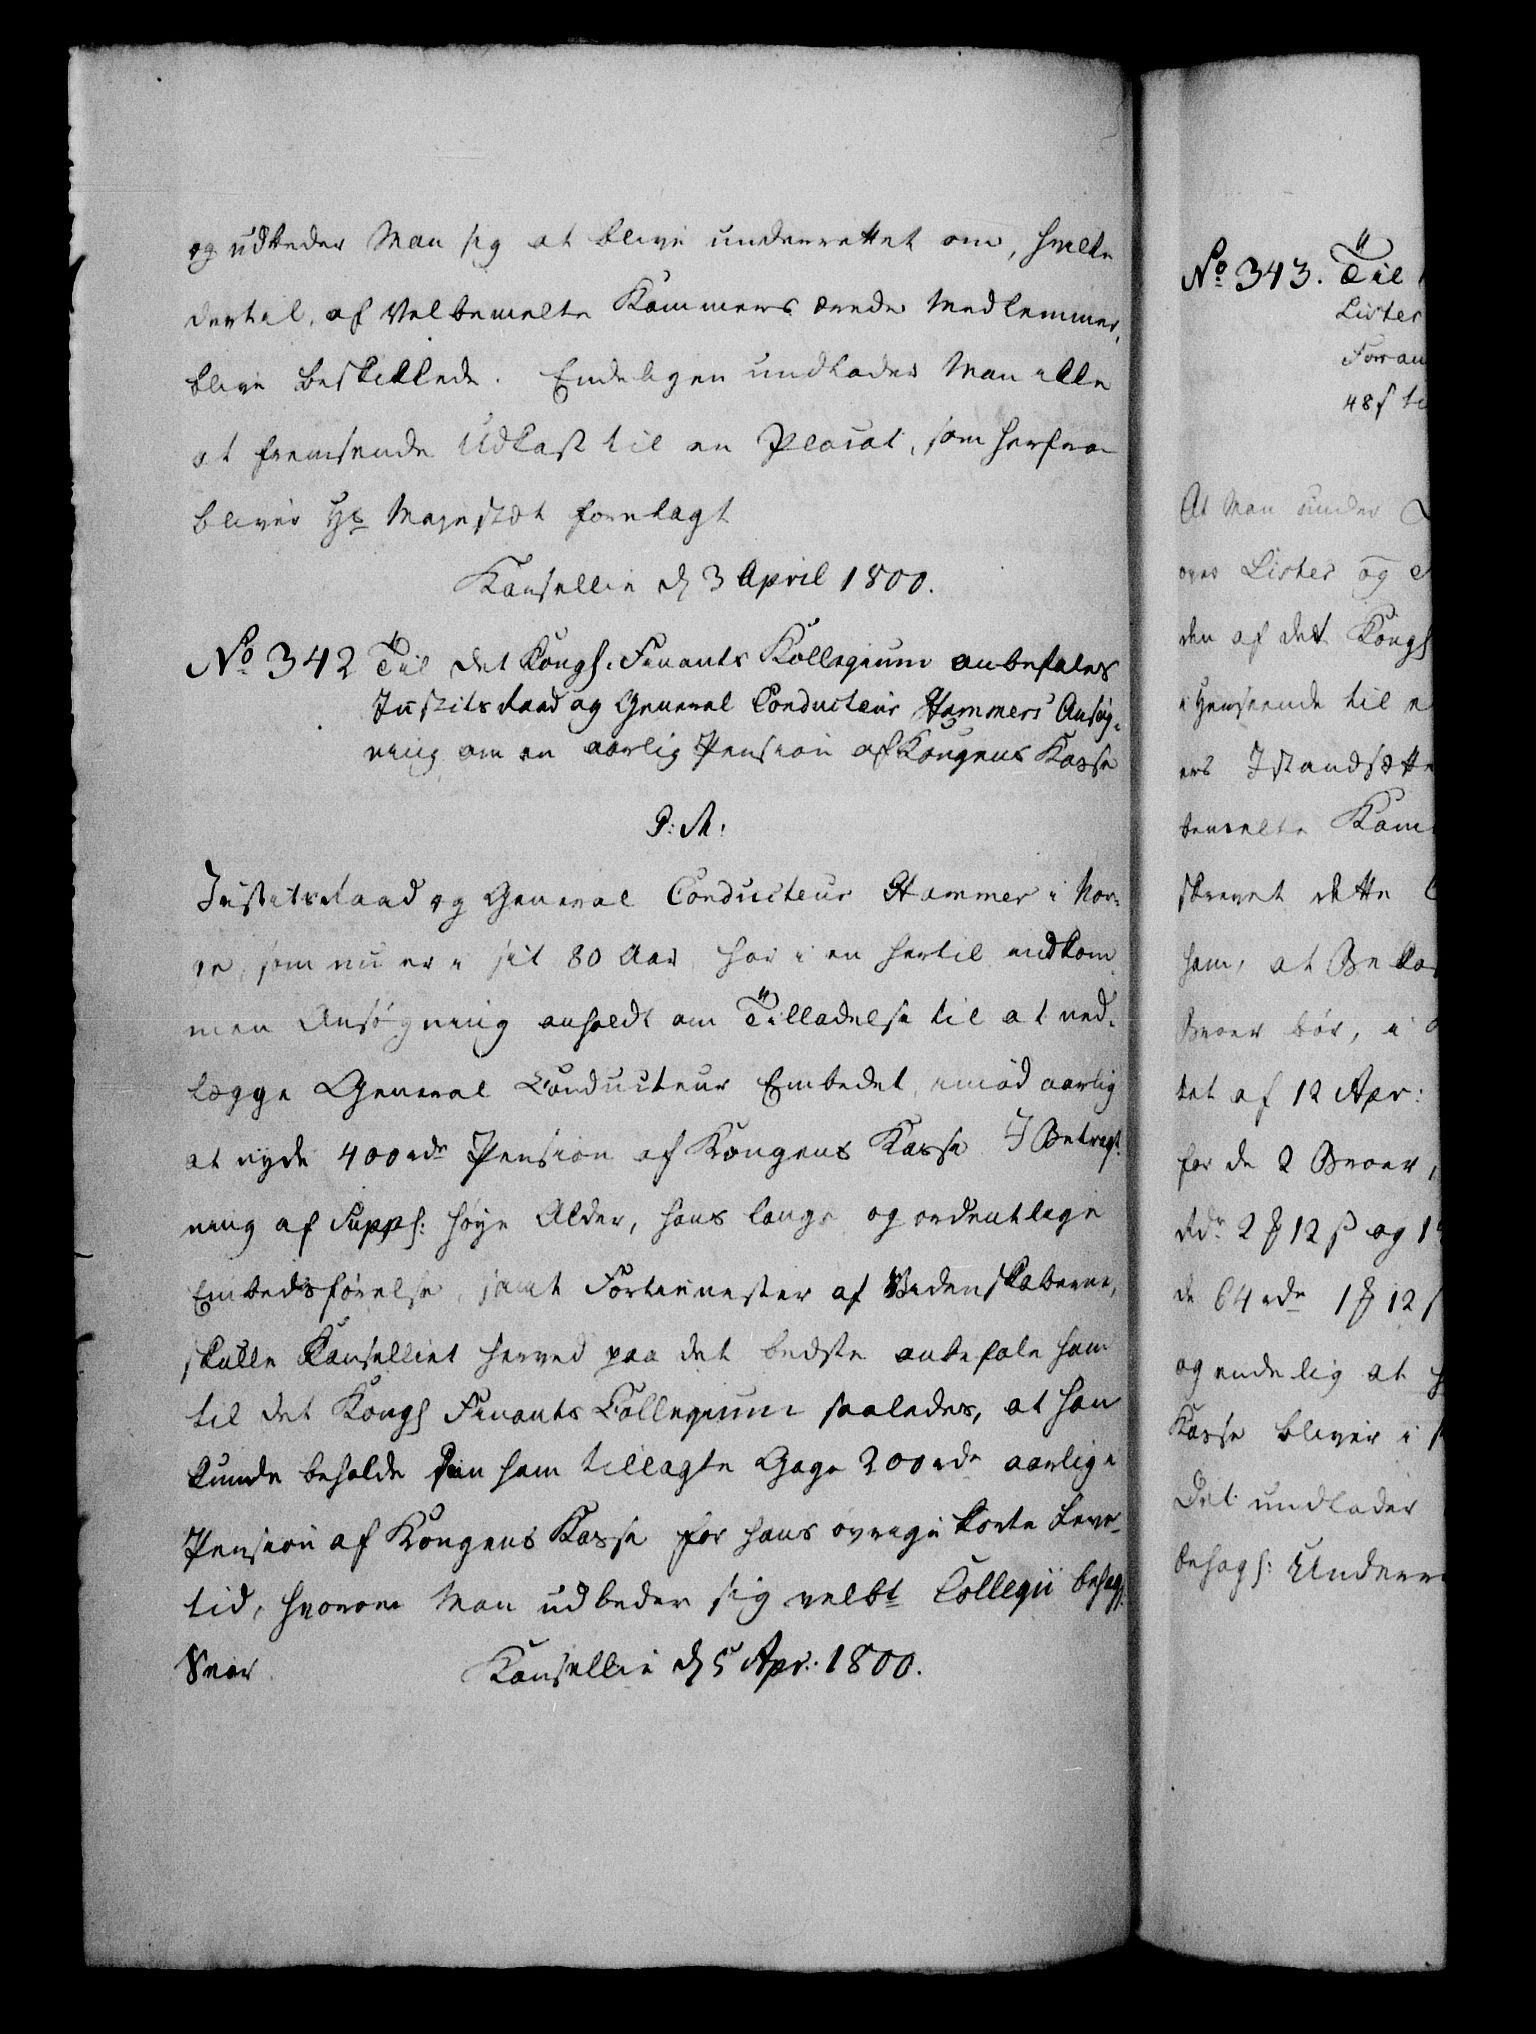 og udbeder Man sig at blive underrettet om, hvilke
dertil, af Velbemelte Kammers ærede Medlemmer,
blive beskikkede. Endeligen undlader Man ikke
at fremsende Udkast til en Placat, som herfra
bliver Hs Majestæt forelagt
Kanselliet d 3 April 1800.
No 342 Til det Kongl. Finants Kollegium anbefales
Justitsraad og General Conducteur Hammers Ansøg-
ning om en aarlig Pension af Kongens Kasse
P: M:
Justitsraad og General Conducteur Hammer i Nor-
ge, som nu er i sit 80 Aar, har i en hertil indkom
men Ansøgning anholdt om Tilladelse til at ned-
lægge General Conducteur Embedet, imod aarlig
at nyde 400 rdr Pension af Kongens Kasse I Betragt-
ning af Suppl: høye Alder, hans lange og ordentlige
Embedsførelse, samt Fortienester af Videnskaberne,
skulle Kanselliet herved paa det bedste anbefale ham
til det Kongl Finants Collegium saaledes, at han
kunde beholde den ham tillagte Gage 200 rdr aarlig i
Pension af Kongens Kasse for hans øvrige korte Leve-
tid, hvorom Man udbeder sig velbt Collegii behagl.
Svar. Kanselliet d 5 Apr. 1800.
No 343. Til
Lister
Forran
48 s ti
At Man under
over Lister og
den af det Kongl
i Henseende til
ers Istandsætte
bemelte Kam
skrevet dette
ham, at Bekos
Broer bør, i
tet af 12 Apr:
for de 2 Broer,
Rdr 2 12 s og 1
de 64 rdr 1 12 s
og endelig at
Kasse bliver i
Det undlader
behagl: Underr